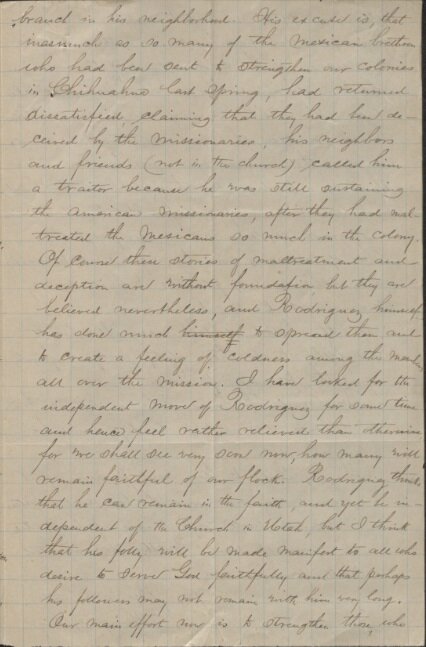 branch in his neighborhood. His excuse is, that
inasmuch as so many of the Mexican brethren
who had been sent to strengthen our colonies
in Chihuahua last spring, had returned
dissatisfied, claiming that they had been de-
ceived by the missionaries, his neighbors
and friends (not in the church) called him
a traitor because he was still sustaining
the American missionaries, after they had mal-
treated the Mexicans so much in the colony.
Of course these stories of maltreatment and
deception are without foundation but they are
believed nevertheless, and Rodriguez himself
has done much himself to spread them and
to create a feeling of coldness among the
all over the mission. I have looked for the
independent move of Rodriguez for some time
and hence feel rather relieved than otherwise
for we shall see very soon now, how many will
remain faithful of our flock. Rodriguez thinks
that he can remain in the faith, and yet be in-
dependent of the Church in Utah, but I think
that his folly will be made manifest to all who
desire to serve God faithfully and that perhaps
his followers may not remain with him very long.
Our main effort now is to strengthen those who